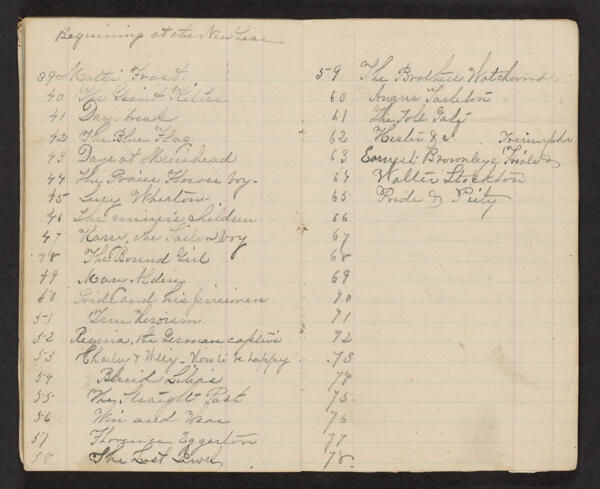 Beginning at the New Year
39 Mattie Frost.
40 The Giant Killer
41 Day-break
42 The Blue Flag
43 Days at Muirhead
44 The Prairie Flower boy-
45 Lucy Wharton-
46 The miner's children
47 Karer, the Sailor boy
48 The Bound Girl
49 Mary Alden
50 Pride and his prisoners
51 True Heroism.
52 Regina, the German captive
53 Charley & Willy- How to be happy
54 Blind Lilias
55 The Straight Path
56 Win and Wear
57 Florence Eggerton
58 The Lost Jewel
59 The Brothers Watchword.
60 Angus Tarleton
61 The Toll Gate
62 Hester & I Triumphs
63 Earnest Brownleys Trials &
64 Walter Stockton
65 Pride & Piety
66
67
68
69
70
71
72
73
74
75
76
77
78